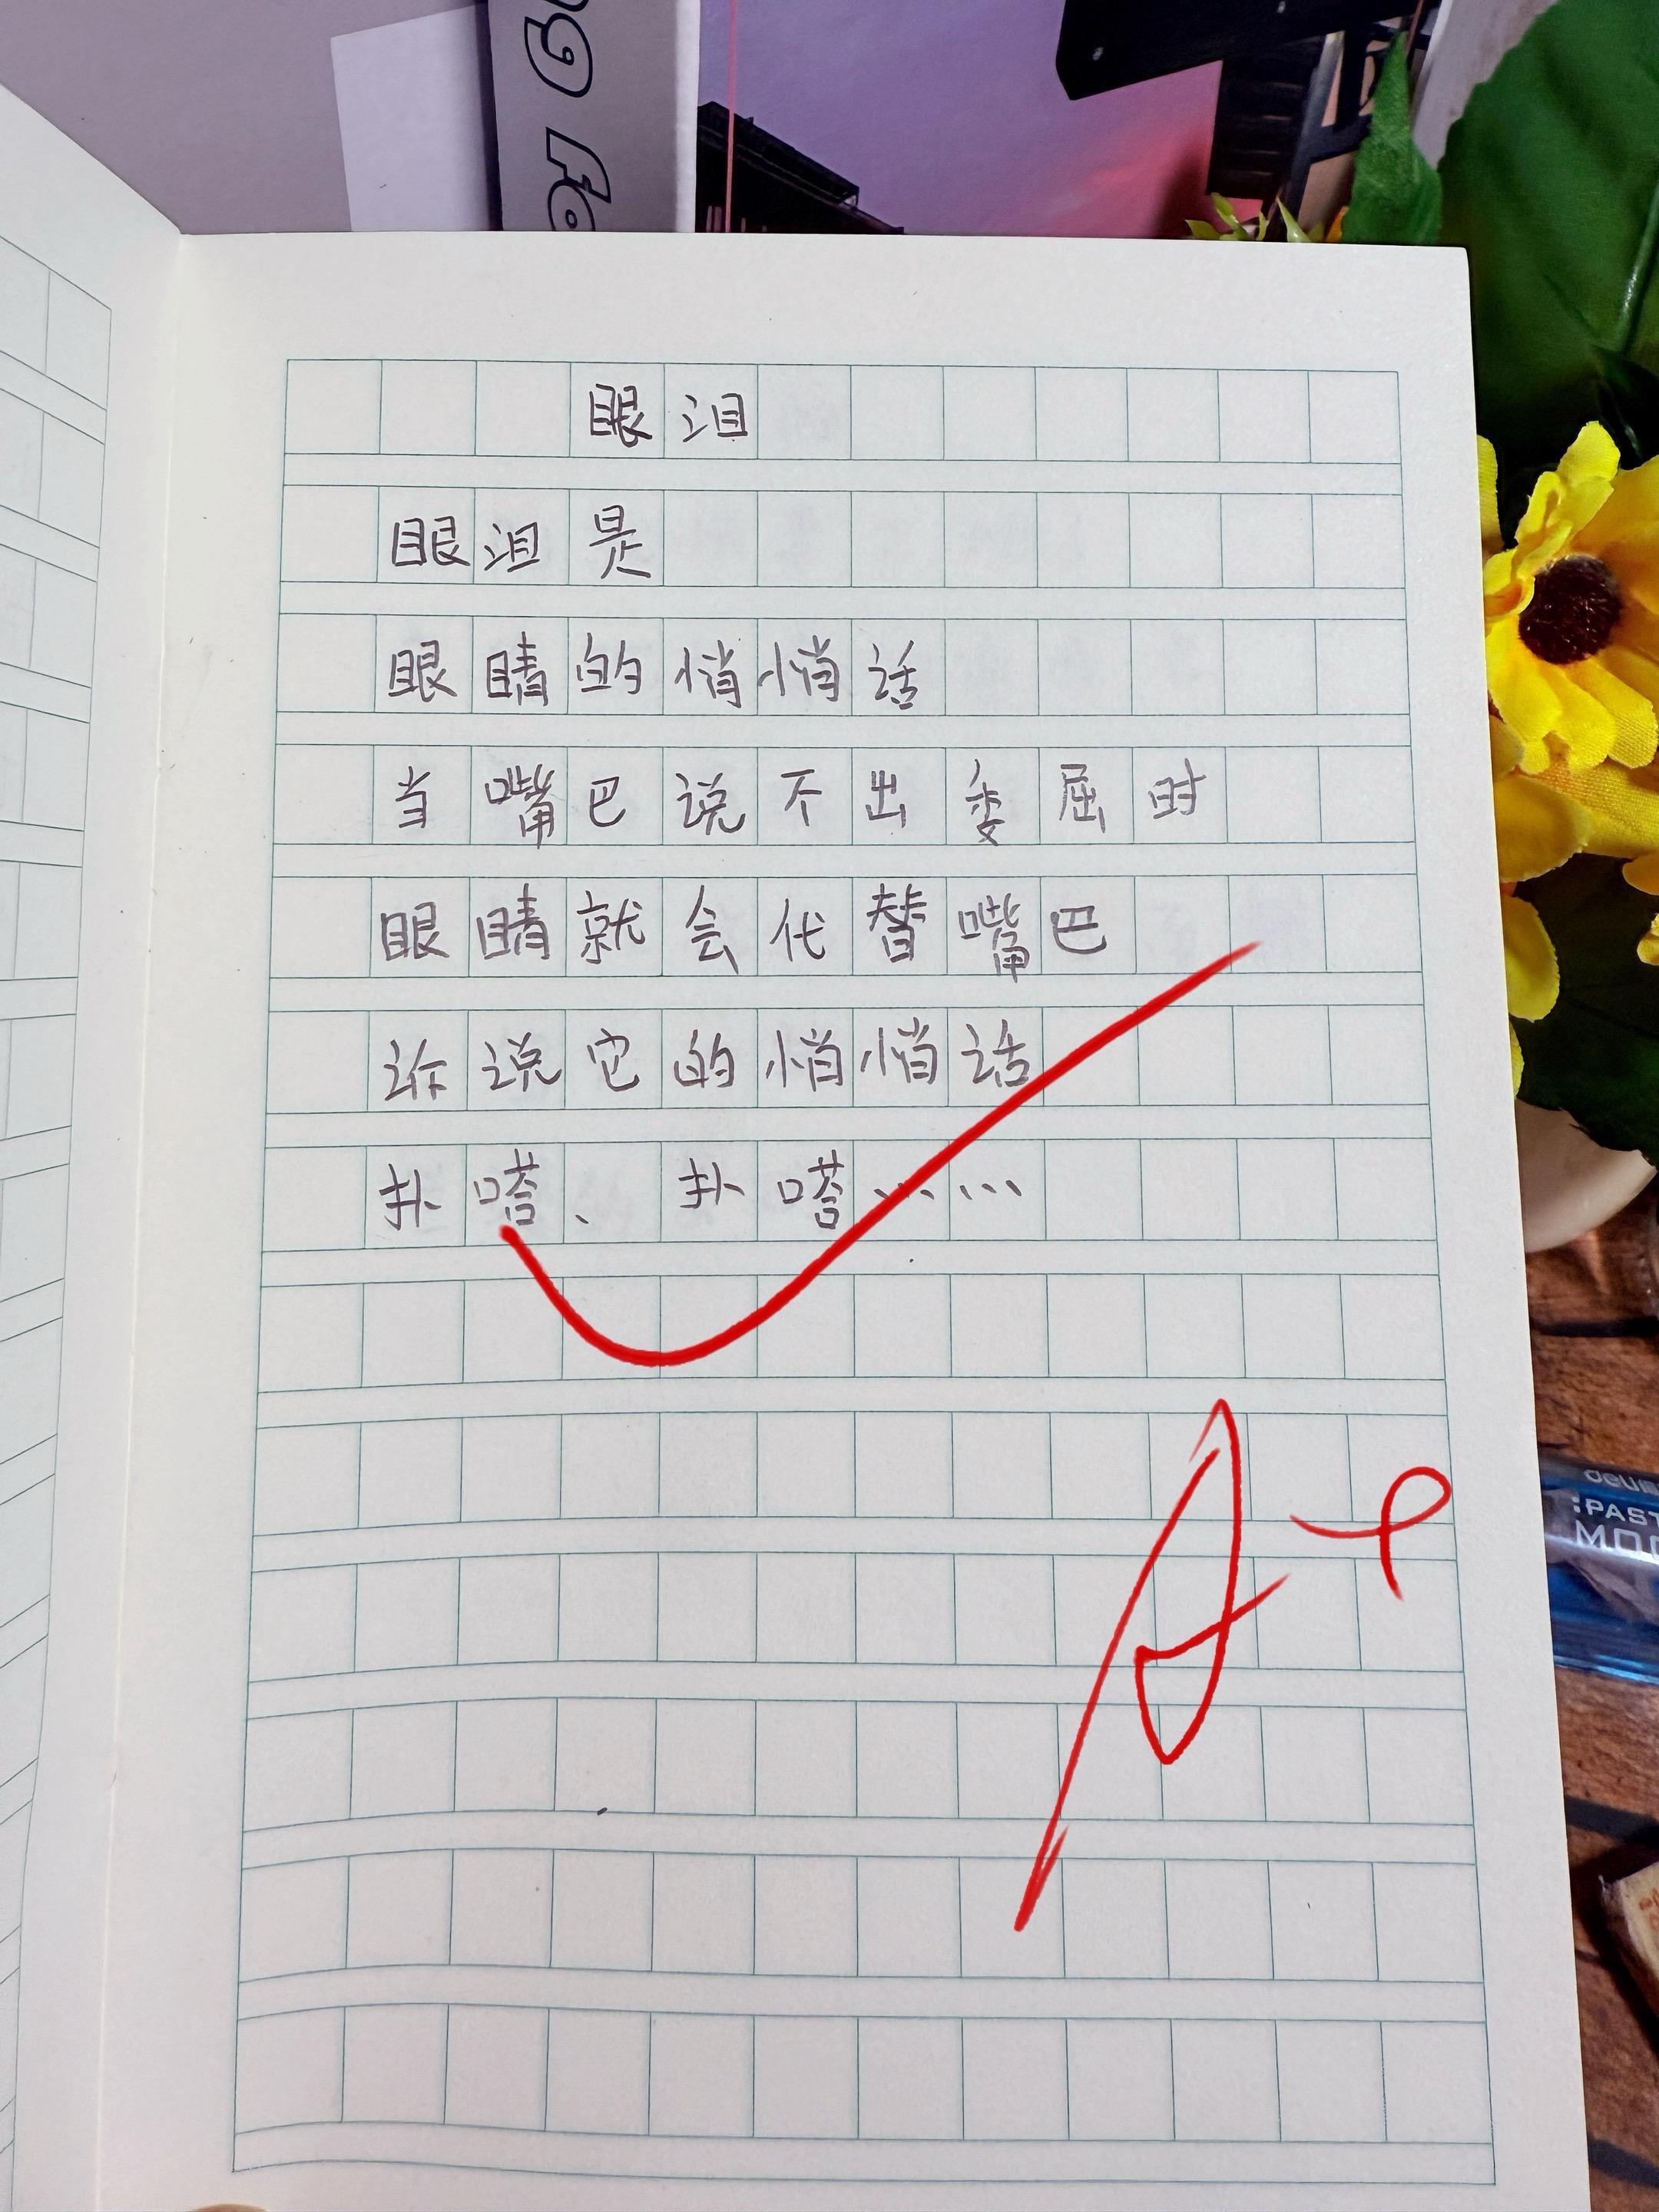 眼泪
眼泪是
眼睛的悄悄话
当嘴巴说不出委屈时
眼睛就会代替嘴巴
诉说它的悄悄话
扑嗒、扑嗒……
A+